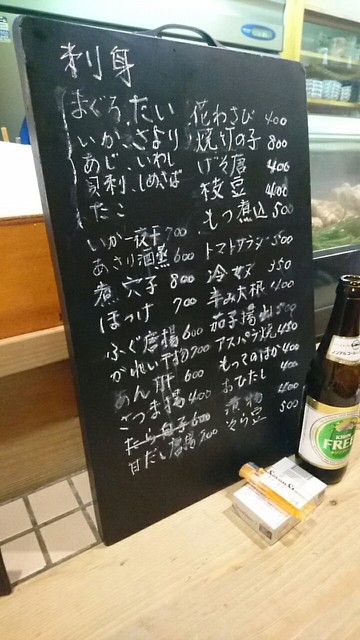 刺身
まぐろ、たい
いか、さより
あじ、いわし
貝刺、しめさば
たこ
いか一夜干 700
あさり酒蒸 600
煮穴子 800
ほっけ 700
ふぐ唐揚 600
かれい干物 700
あん肝 600
さつま揚 400
たら白子 600
甘だい唐揚
花わさび 400
焼竹の子 800
げそ唐 400
枝豆 400
もつ煮込 500
トマトサラダ 500
冷奴 350
辛み大根 400
茄子揚出し 500
アスパラ焼 450
もってのほか 400
おひたし 400
漬物 400
そら豆 500
KIRIN
FREE